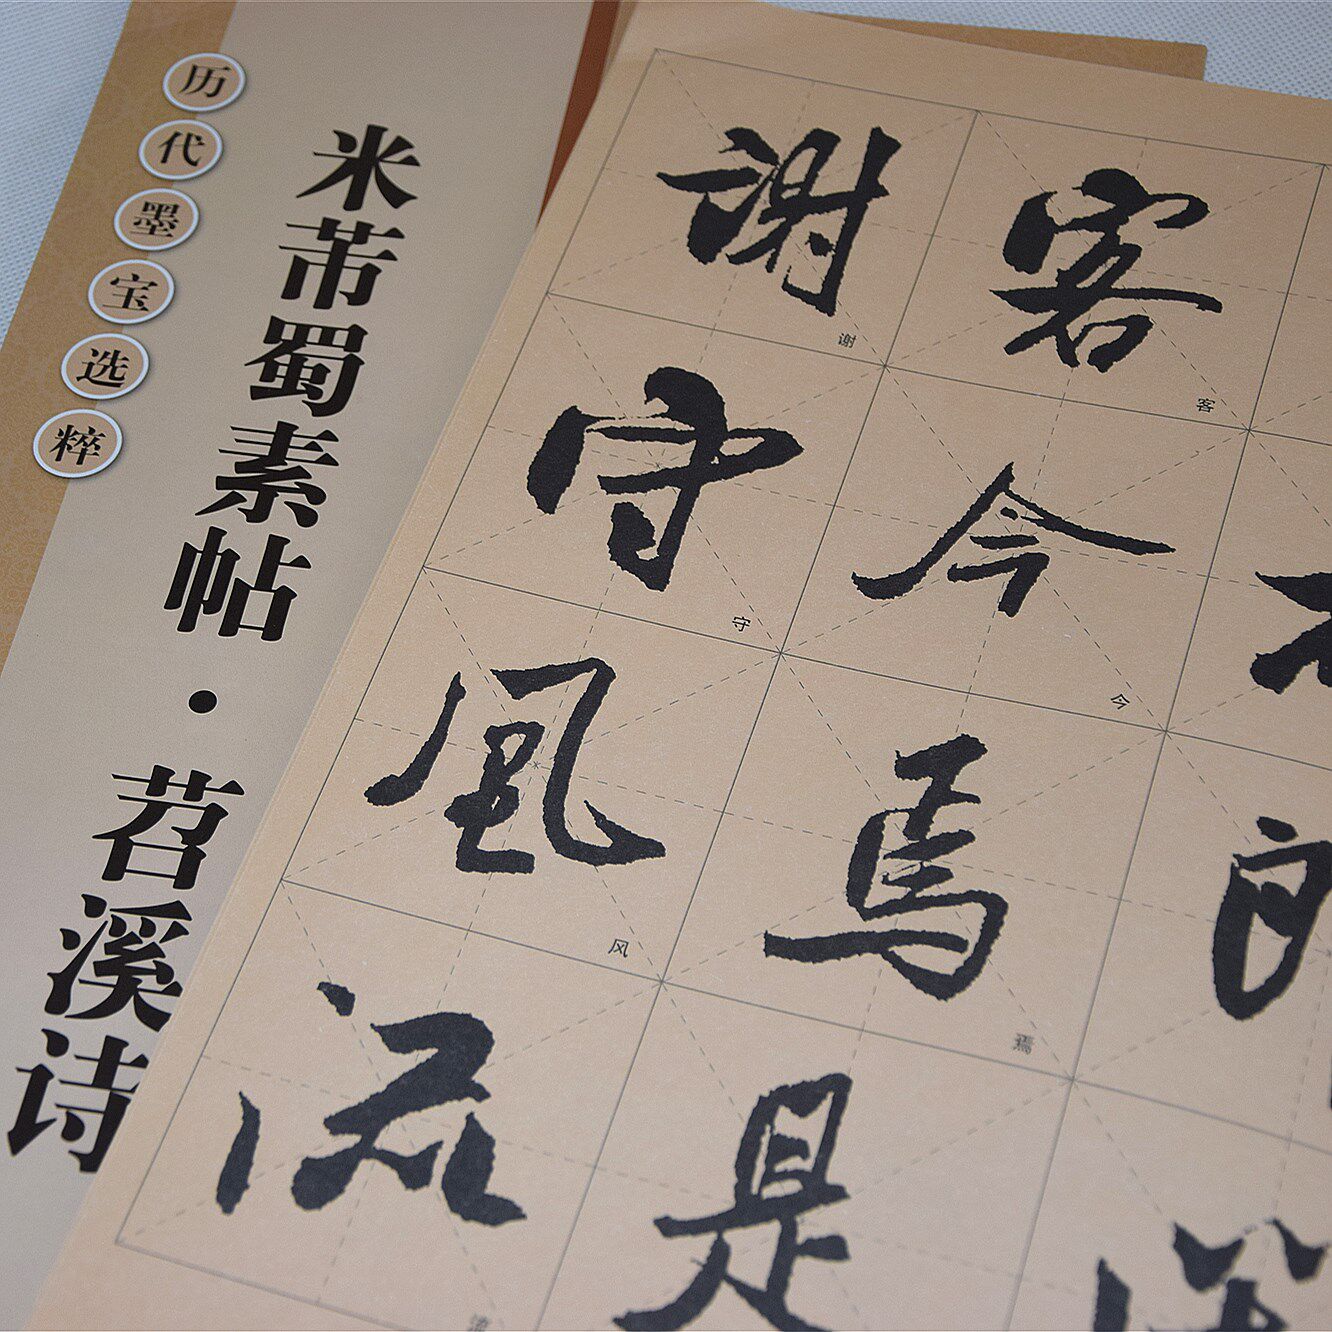 历代墨宝选粹
米芾蜀素帖·苕溪诗
謝 客
谢 客
守 今
守 今
風 焉
风 焉
流 是
流